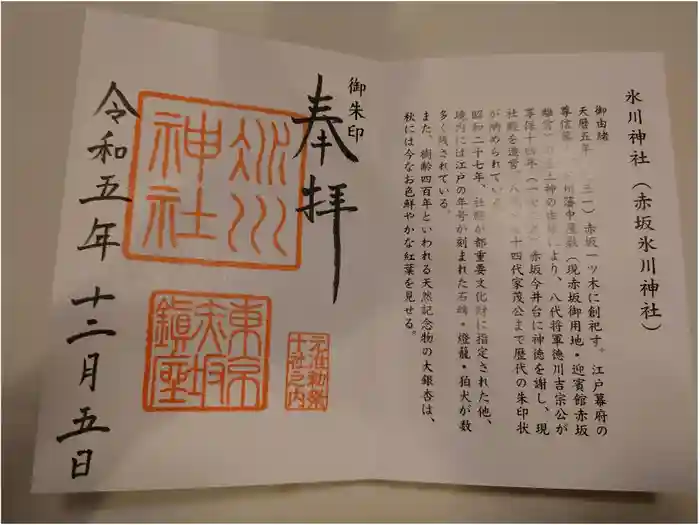 氷川神社（赤坂氷川神社）
御由緒
天暦五年 赤坂一ツ木に創祀す。江戸幕府の
尊信篤 川藩中屋敷（現赤坂御用地・迎賓館赤坂
離宮 土神の由 により、八代将軍徳川吉宗公が
享保十四年（一七 赤坂今井台に神徳を謝し、現
社殿を造営。八 十四代家茂公まで歴代の朱印状
が納められている。
昭和二十七年、社殿が都重要文化財に指定された他、
境内には江戸の年号が刻まれた石鳥 ・燈籠・狛犬が数
多く残されている。
また、樹齢四百年といわれる天然記念物の大銀杏は、
秋には今なお色鮮やかな紅葉を見せる。
御朱印
奉拝
氷川
神社
元准勅祭
十社之内
東京
赤坂
鎮座
令和五年十二月五日